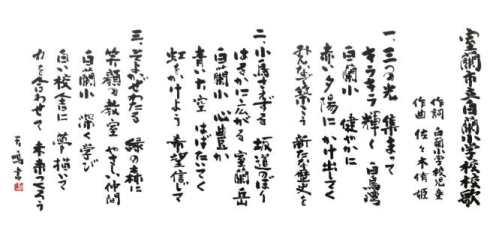 室蘭市立白蘭小学校校歌
作詞 白蘭小学校児童
作曲 佐々木倚姫
一、三つの光 集まって
キラキラ輝く 白鳥湾
白蘭小 健やかに
赤い夕陽に かけ出してく
みんなで築こう 新たな歴史を
二、小鳥さえずる 坂道のぼり
はるかに広がる 室蘭岳
白蘭小 心豊か
青い大空 はばたいてく
虹をかけよう 希望信じて
三、そよかぜわたる 緑の森に
笑顔の教室 やさしい仲間
白蘭小 深く学び
白い校舎に 夢描いて
力を合わせて 未来つくろう